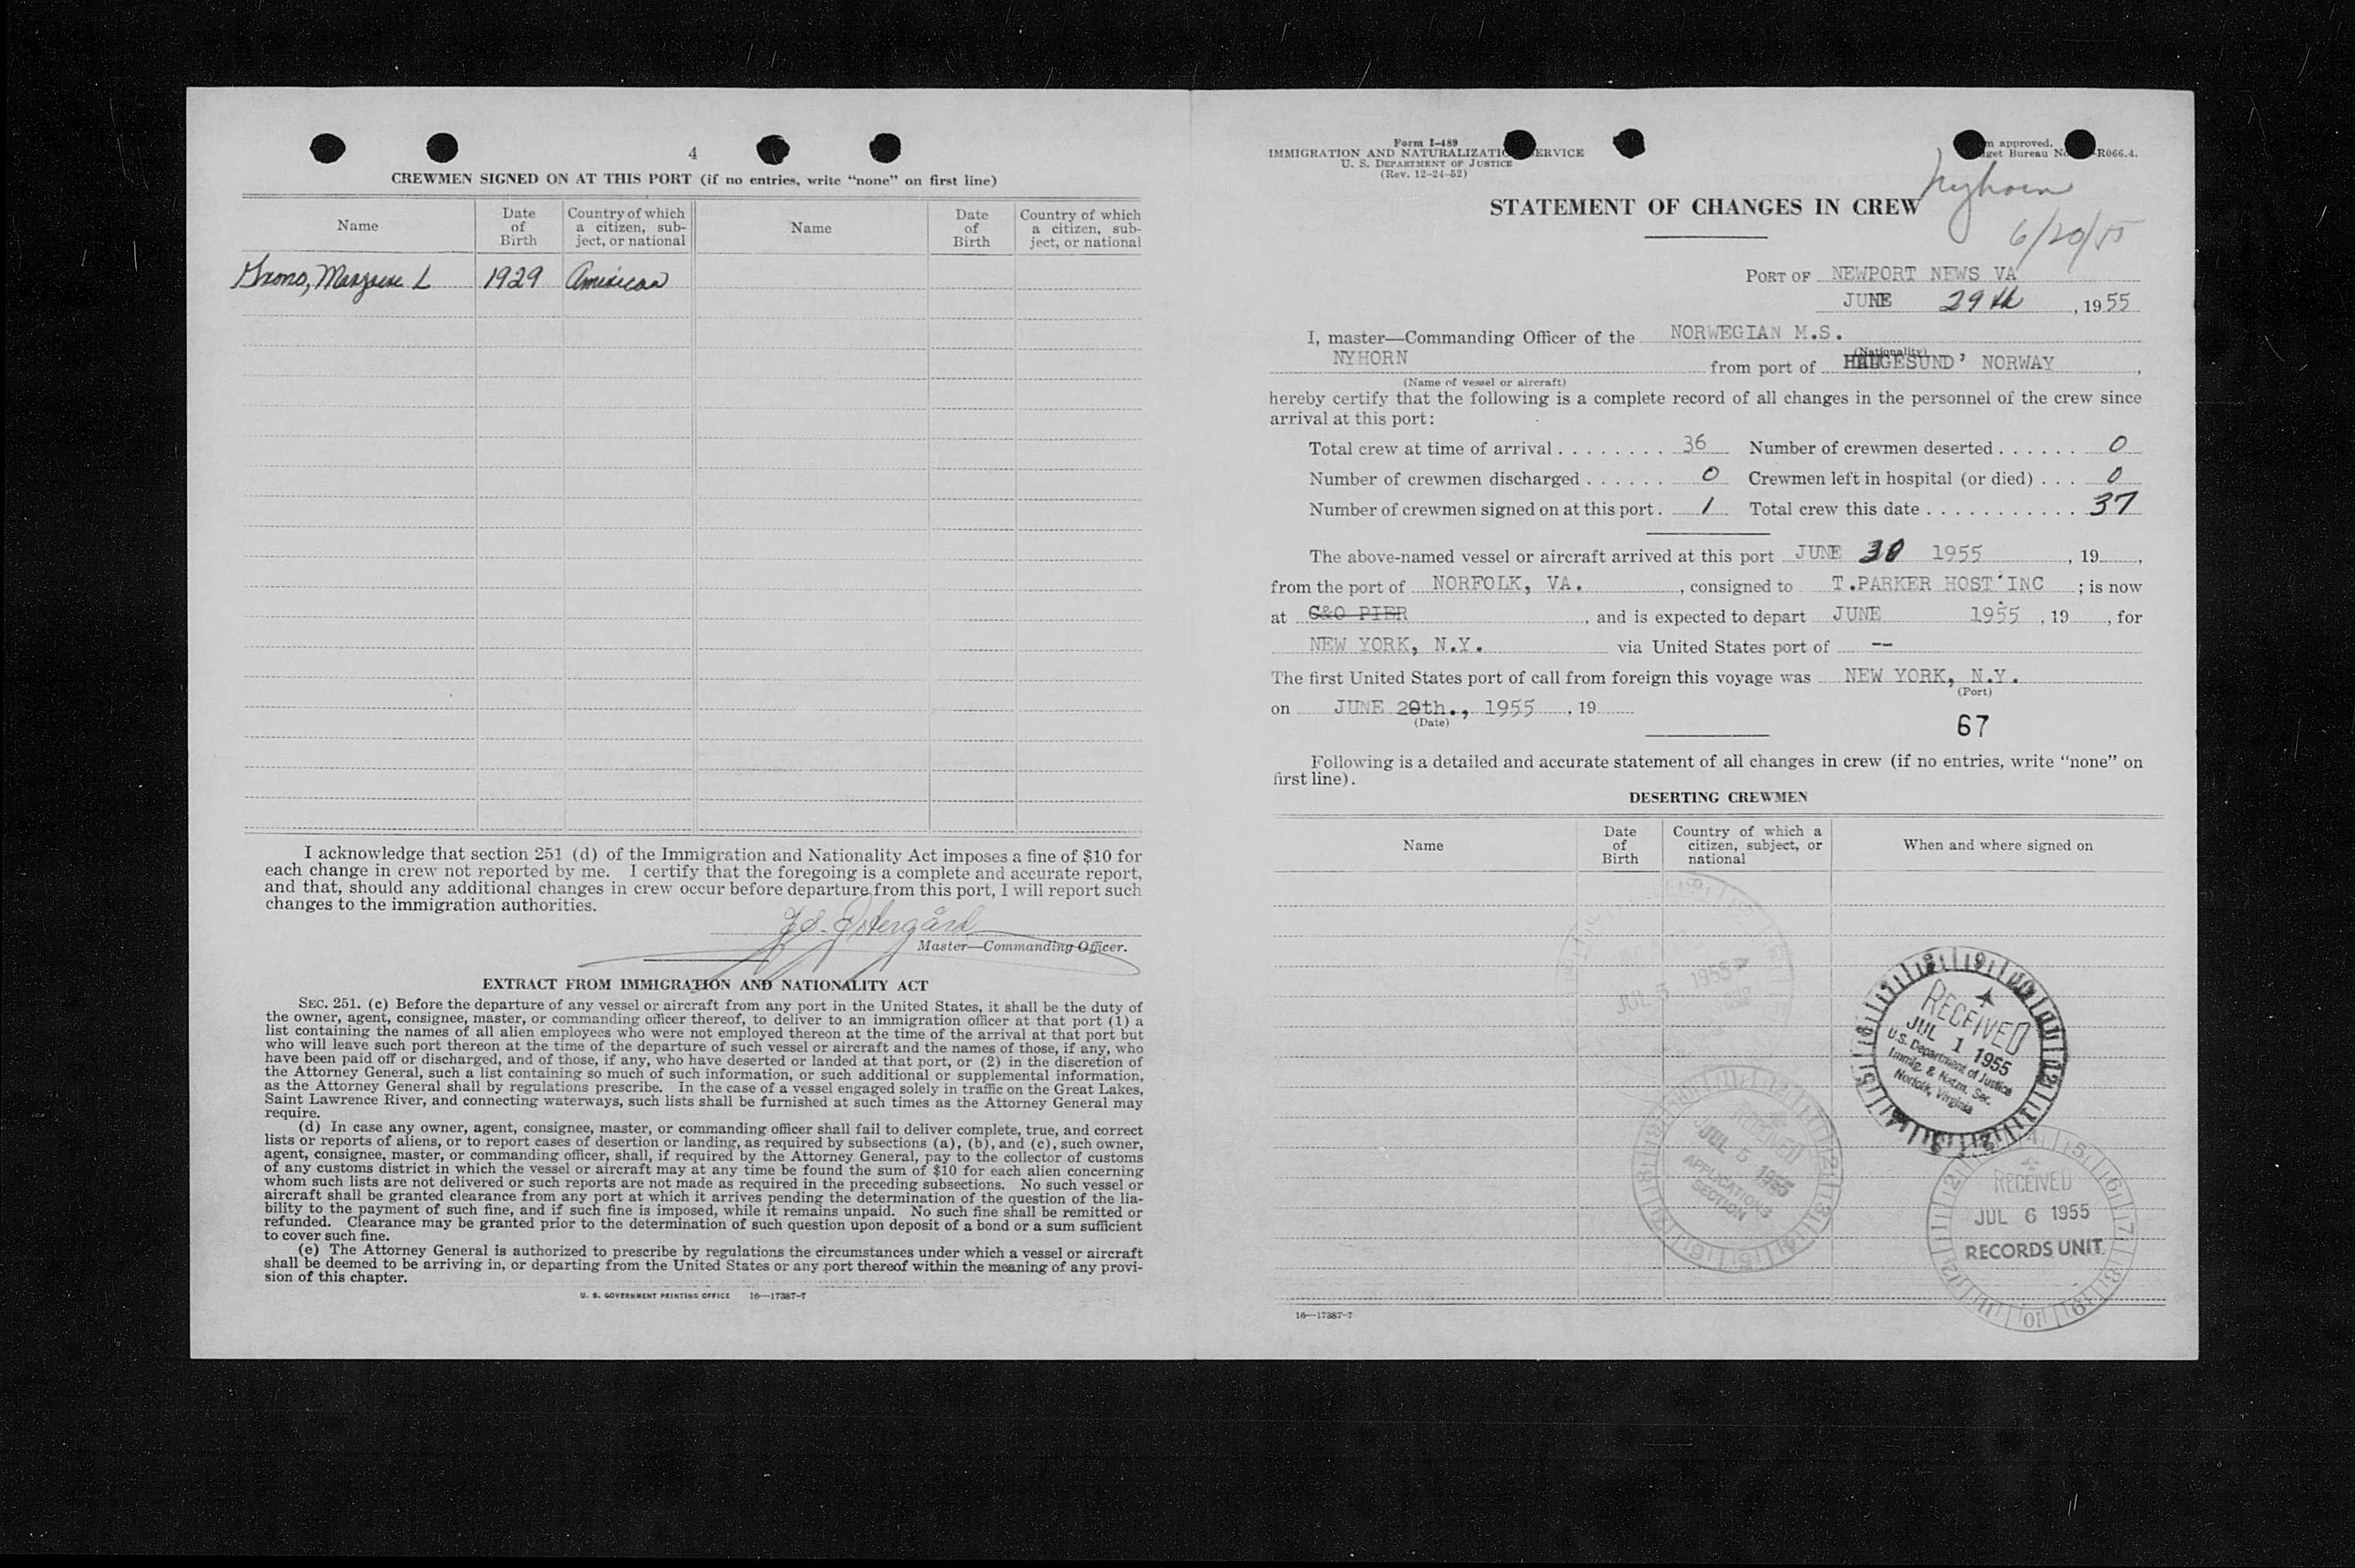 4
CREWMEN SIGNED ON AT THIS PORT (if no entries, write “none” on first line)
Name
Date of Birth
Country of which a citizen, subject, or national
Name
Date of Birth
Country of which a citizen, sub-ject, or national
L 1929 American
I acknowledge that section 251 (d) of the Immigration and Nationality Act imposes a fine of $10 for
each change in crew not reported by me. I certify that the foregoing is a complete and accurate report,
and that, should any additional changes in crew occur before departure from this port, I will report such
changes to the immigration authorities.
Østergård
Master—Commanding Officer.
EXTRACT FROM IMMIGRATION AND NATIONALITY ACT
SEC. 251. (c) Before the departure of any vessel or aircraft from any port in the United States, it shall be the duty of
the owner, agent, consignee, master, or commanding officer thereof, to deliver to an immigration officer at that port (1) a
list containing the names of all alien employees who were not employed thereon at the time of the arrival at that port but
who will leave such port thereon at the time of the departure of such vessel or aircraft and the names of those, if any, who
have been paid off or discharged, and of those, if any, who have deserted or landed at that port, or (2) in the discretion of
the Attorney General, such a list containing so much of such information, or such additional or supplemental information,
as the Attorney General shall by regulations prescribe. In the case of a vessel engaged solely in traffic on the Great Lakes,
Saint Lawrence River, and connecting waterways, such lists shall be furnished at such times as the Attorney General may
require.
(d) In case any owner, agent, consignee, master, or commanding officer shall fail to deliver complete, true, and correct
lists or reports of aliens, or to report cases of desertion or landing, as required by subsections (a), (b), and (c), such owner,
agent, consignee, master, or commanding officer, shall, if required by the Attorney General, pay to the collector of customs
of any customs district in which the vessel or aircraft may at any time be found the sum of $10 for each alien concerning
whom such lists are not delivered or such reports are not made as required in the preceding subsections. No such vessel or
aircraft shall be granted clearance from any port at which it arrives pending the determination of the question of the lia-
bility to the payment of such fine, and if such fine is imposed, while it remains unpaid. No such fine shall be remitted or
refunded. Clearance may be granted prior to the determination of such question upon deposit of a bond or a sum sufficient
to cover such fine.
(e) The Attorney General is authorized to prescribe by regulations the circumstances under which a vessel or aircraft
shall be deemed to be arriving in, or departing from the United States or any port thereof within the meaning of any provi-
sion of this chapter.
U. S. GOVERNMENT PRINTING OFFICE 16—17387-7
Form I-489
IMMIGRATION AND NATURALIZATIO ERVICE
U. S. DEPARTMENT OF JUSTICE
(Rev. 12-24-52)
m approved.
get Bureau No. -R066.4.
Nyhorn
6/20/55
STATEMENT OF CHANGES IN CREW
PORT OF NEWPORT NEWS VA
JUNE 29th, 1955
I, master—Commanding Officer of the NORWEGIAN M.S.
(Nationality)
NYHORN from port of HAUGESUND' NORWAY,
(Name of vessel or aircraft)
hereby certify that the following is a complete record of all changes in the personnel of the crew since
arrival at this port:
Total crew at time of arrival . . . . . . . . 36 Number of crewmen deserted . . . . . . 0
Number of crewmen discharged . . . . . . 0 Crewmen left in hospital (or died) . . . 0
Number of crewmen signed on at this port . 1 Total crew this date . . . . . . . . . . . 37
The above-named vessel or aircraft arrived at this port JUNE 30 1955, 19 ,
from the port of NORFOLK, VA. , consigned to T.PARKER HOST'INC ; is now
at C&O PIER , and is expected to depart JUNE 1955 , 19 , for
NEW YORK, N.Y. via United States port of --
The first United States port of call from foreign this voyage was NEW YORK, N.Y.
(Port)
on JUNE 20th., 1955 , 19
(Date)
67
Following is a detailed and accurate statement of all changes in crew (if no entries, write “none” on
first line).
DESERTING CREWMEN
Name
Date of Birth
Country of which a citizen, subject, or national
When and where signed on
JUL 5 1955
RECEIVED
JUL 1 1955
U.S. Department of Justice
Immig. & Natzn. Ser.
Norfolk, Virginia
RECEIVED
JUL 5 1955
APPLICATIONS
SECTION
RECEIVED
JUL 6 1955
RECORDS UNIT
16—17387-7